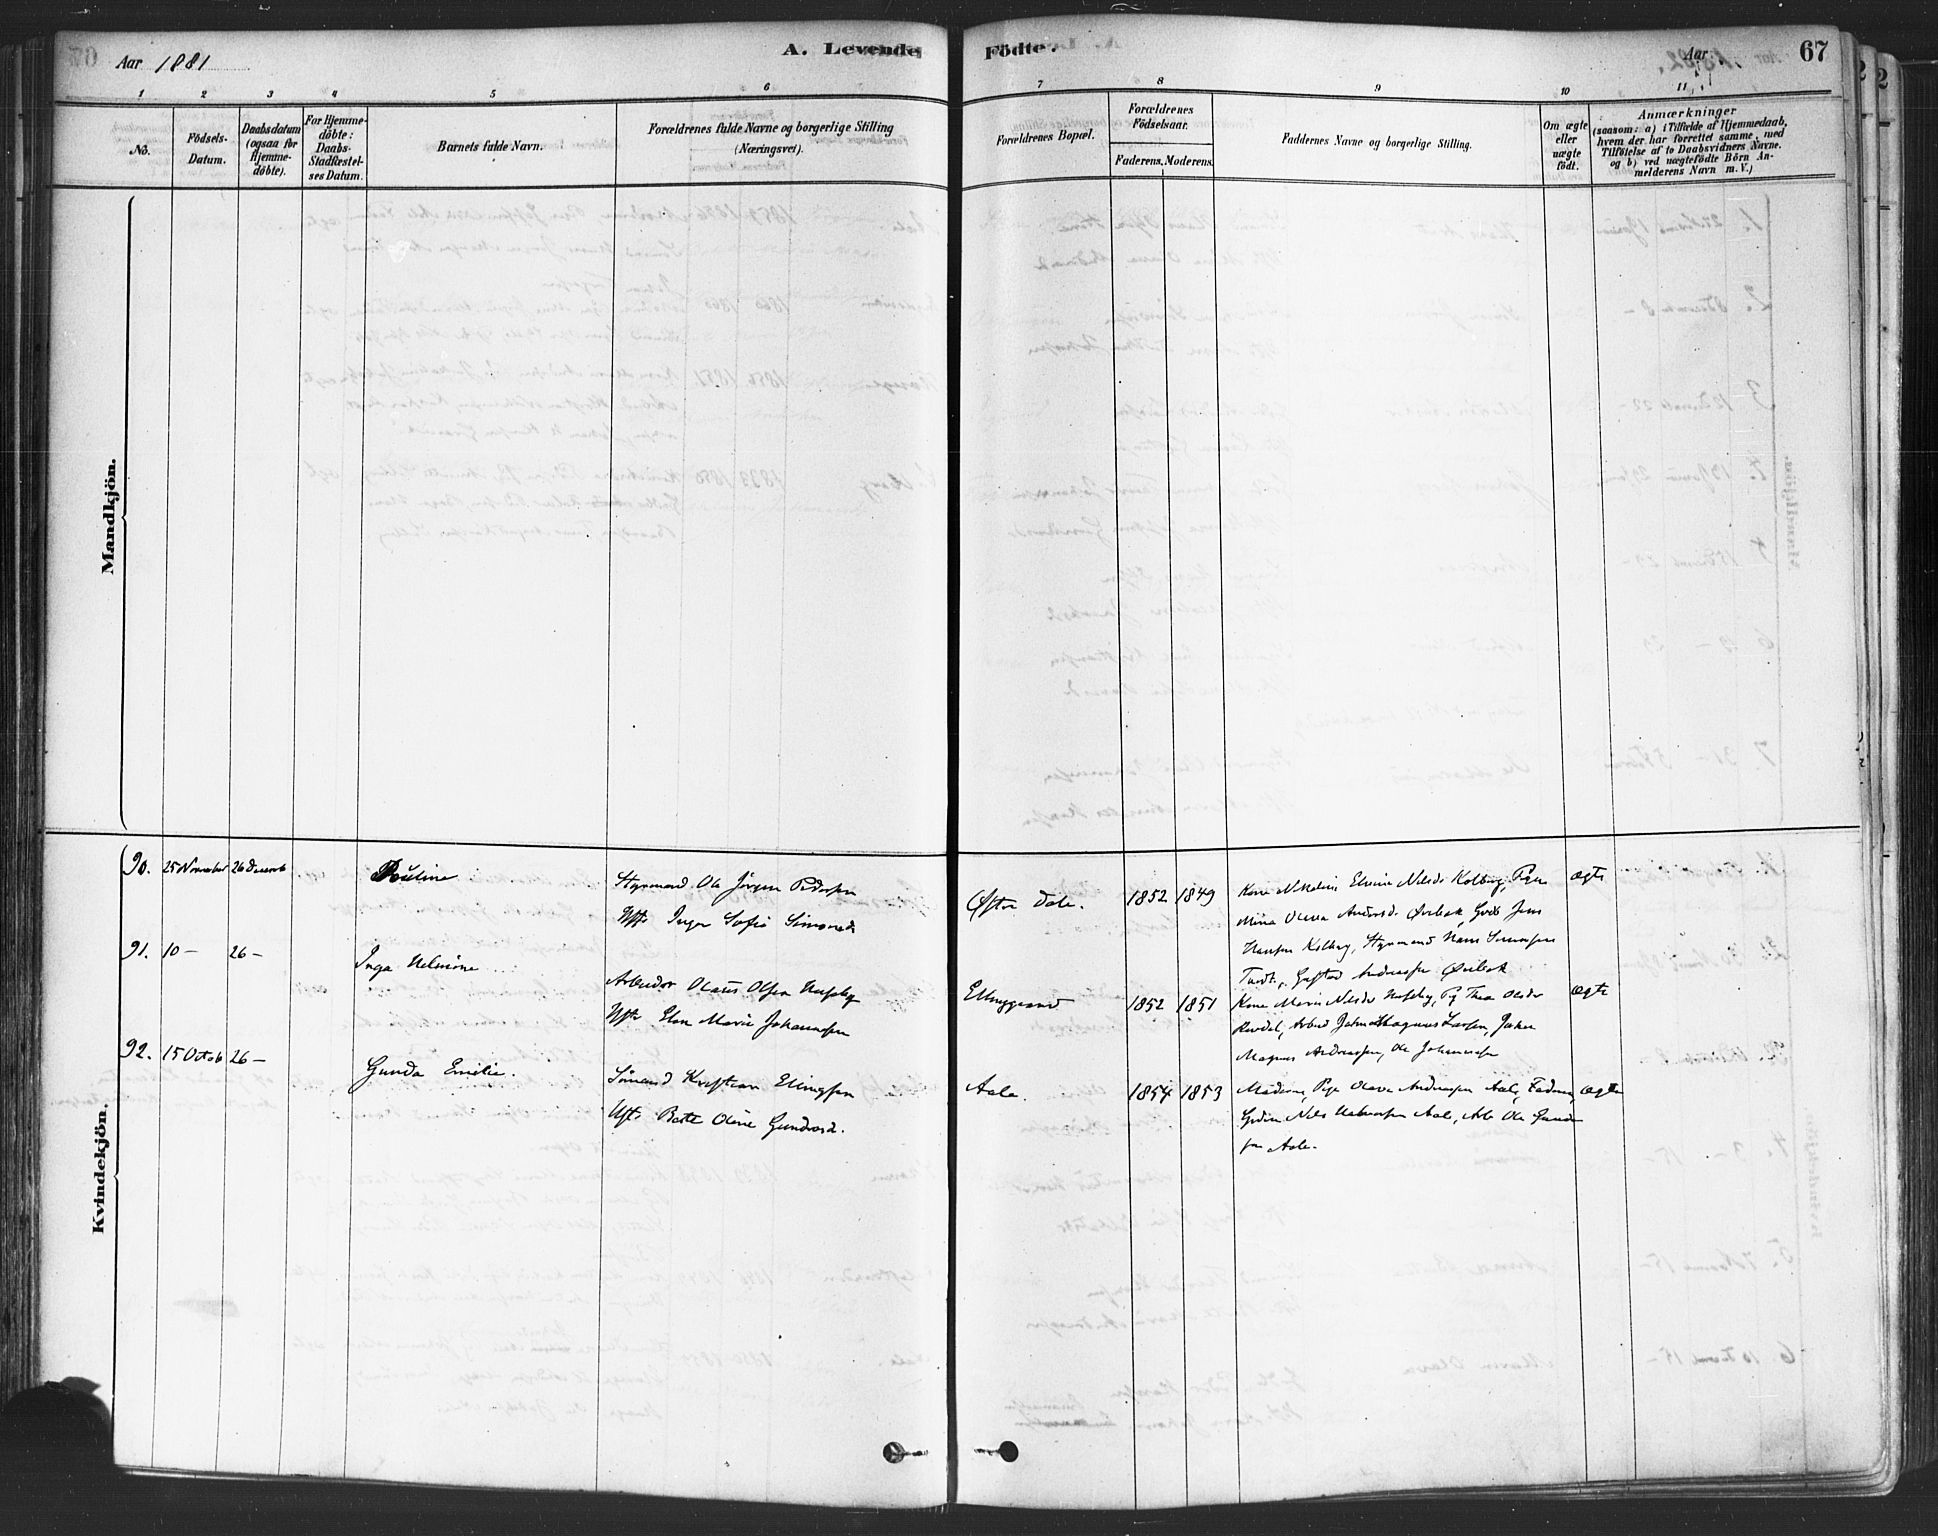 Aar 1881
A. Levende Födte.
Aar
67
1 2 3 4 5 6 7 8 9 10 11
No.
Födsels-
Datum.
Daabsdatum
(ogsaa for
Hjemme-
döbte).
For Hjemme-
döbte:
Daabs-
Stadfæstel-
ses Datum.
Barnets fulde Navn.
Forældrenes fulde Navne og borgerlige Stilling
(Næringsvei).
Forældrenes Bopæl.
Forældrenes
Födselsaar.
Faderens. Moderens.
Faddernes Navne og borgerlige Stilling.
Om ægte
eller
uægte
födt.
Anmærkninger
(saasom: a) i Tilfælde af Hjemmedaab,
hvem der har forrettet samme, med
Tilföielse af to Daabsvidners Navne.
og b) ved uægtefödte Börn An-
melderens Navn m. V.)
Mandkjön.
Kvindekjön.
90. 25 November 26 Decemb
Pouline
Styrmand Ole Jörgen Pedersen
Hst. Inger Sofie Simonsd.
Østre Dale. 1852 1849
Kone Elvine Nilsd. Kolberg, Pige
Mina Olava Andersd. Ørebek, Jens
Hansen Kolberg, Styrmand Hans
Gustav Andreassen Ørebek
ægte
91. 10 – 26 –
Inga
Arbeider Olaus Olsen
Hst. Elen Marie Johannesen
1852 1851
Kone Maren Nilsd. Pg Thea Olsd.
Arbeid Johan Magnus Larsen, Johan
Magnus Andreassen, Ole Johannesen
ægte
92. 15 Octob 26 –
Gunda Emilie.
Sömand Kristian Ellingsen
Hst. Berte Oline Gundersd.
Aale. 1854 1853
Moderen, Pige Olava Andreassen Aale, Faderen,
Nils Aale, Arb. Ole Gunder
sen Aale.
ægte